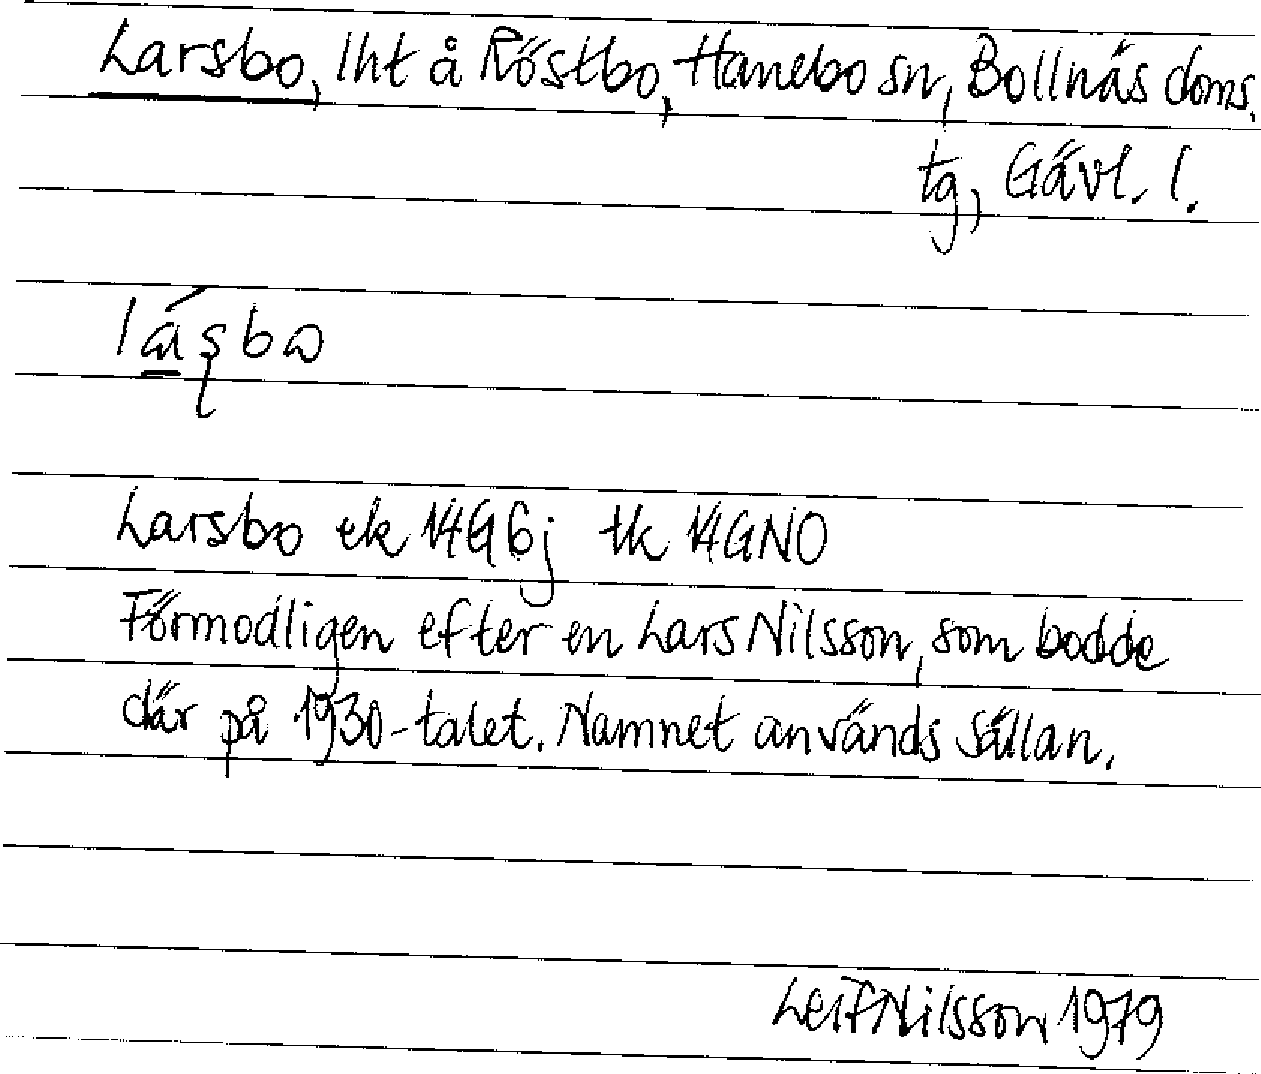 Larsbo, lht å Röstbo, Hanebo sn, Bollnäs doms.
tg, Gävl. l.
lá̱ʂbɷ
Larsbo ek 14G6j tk 14GNO
Förmodligen efter en Lars Nilsson, som bodde
där på 1930-talet. Namnet används sällan.
Leif Nilsson 1979